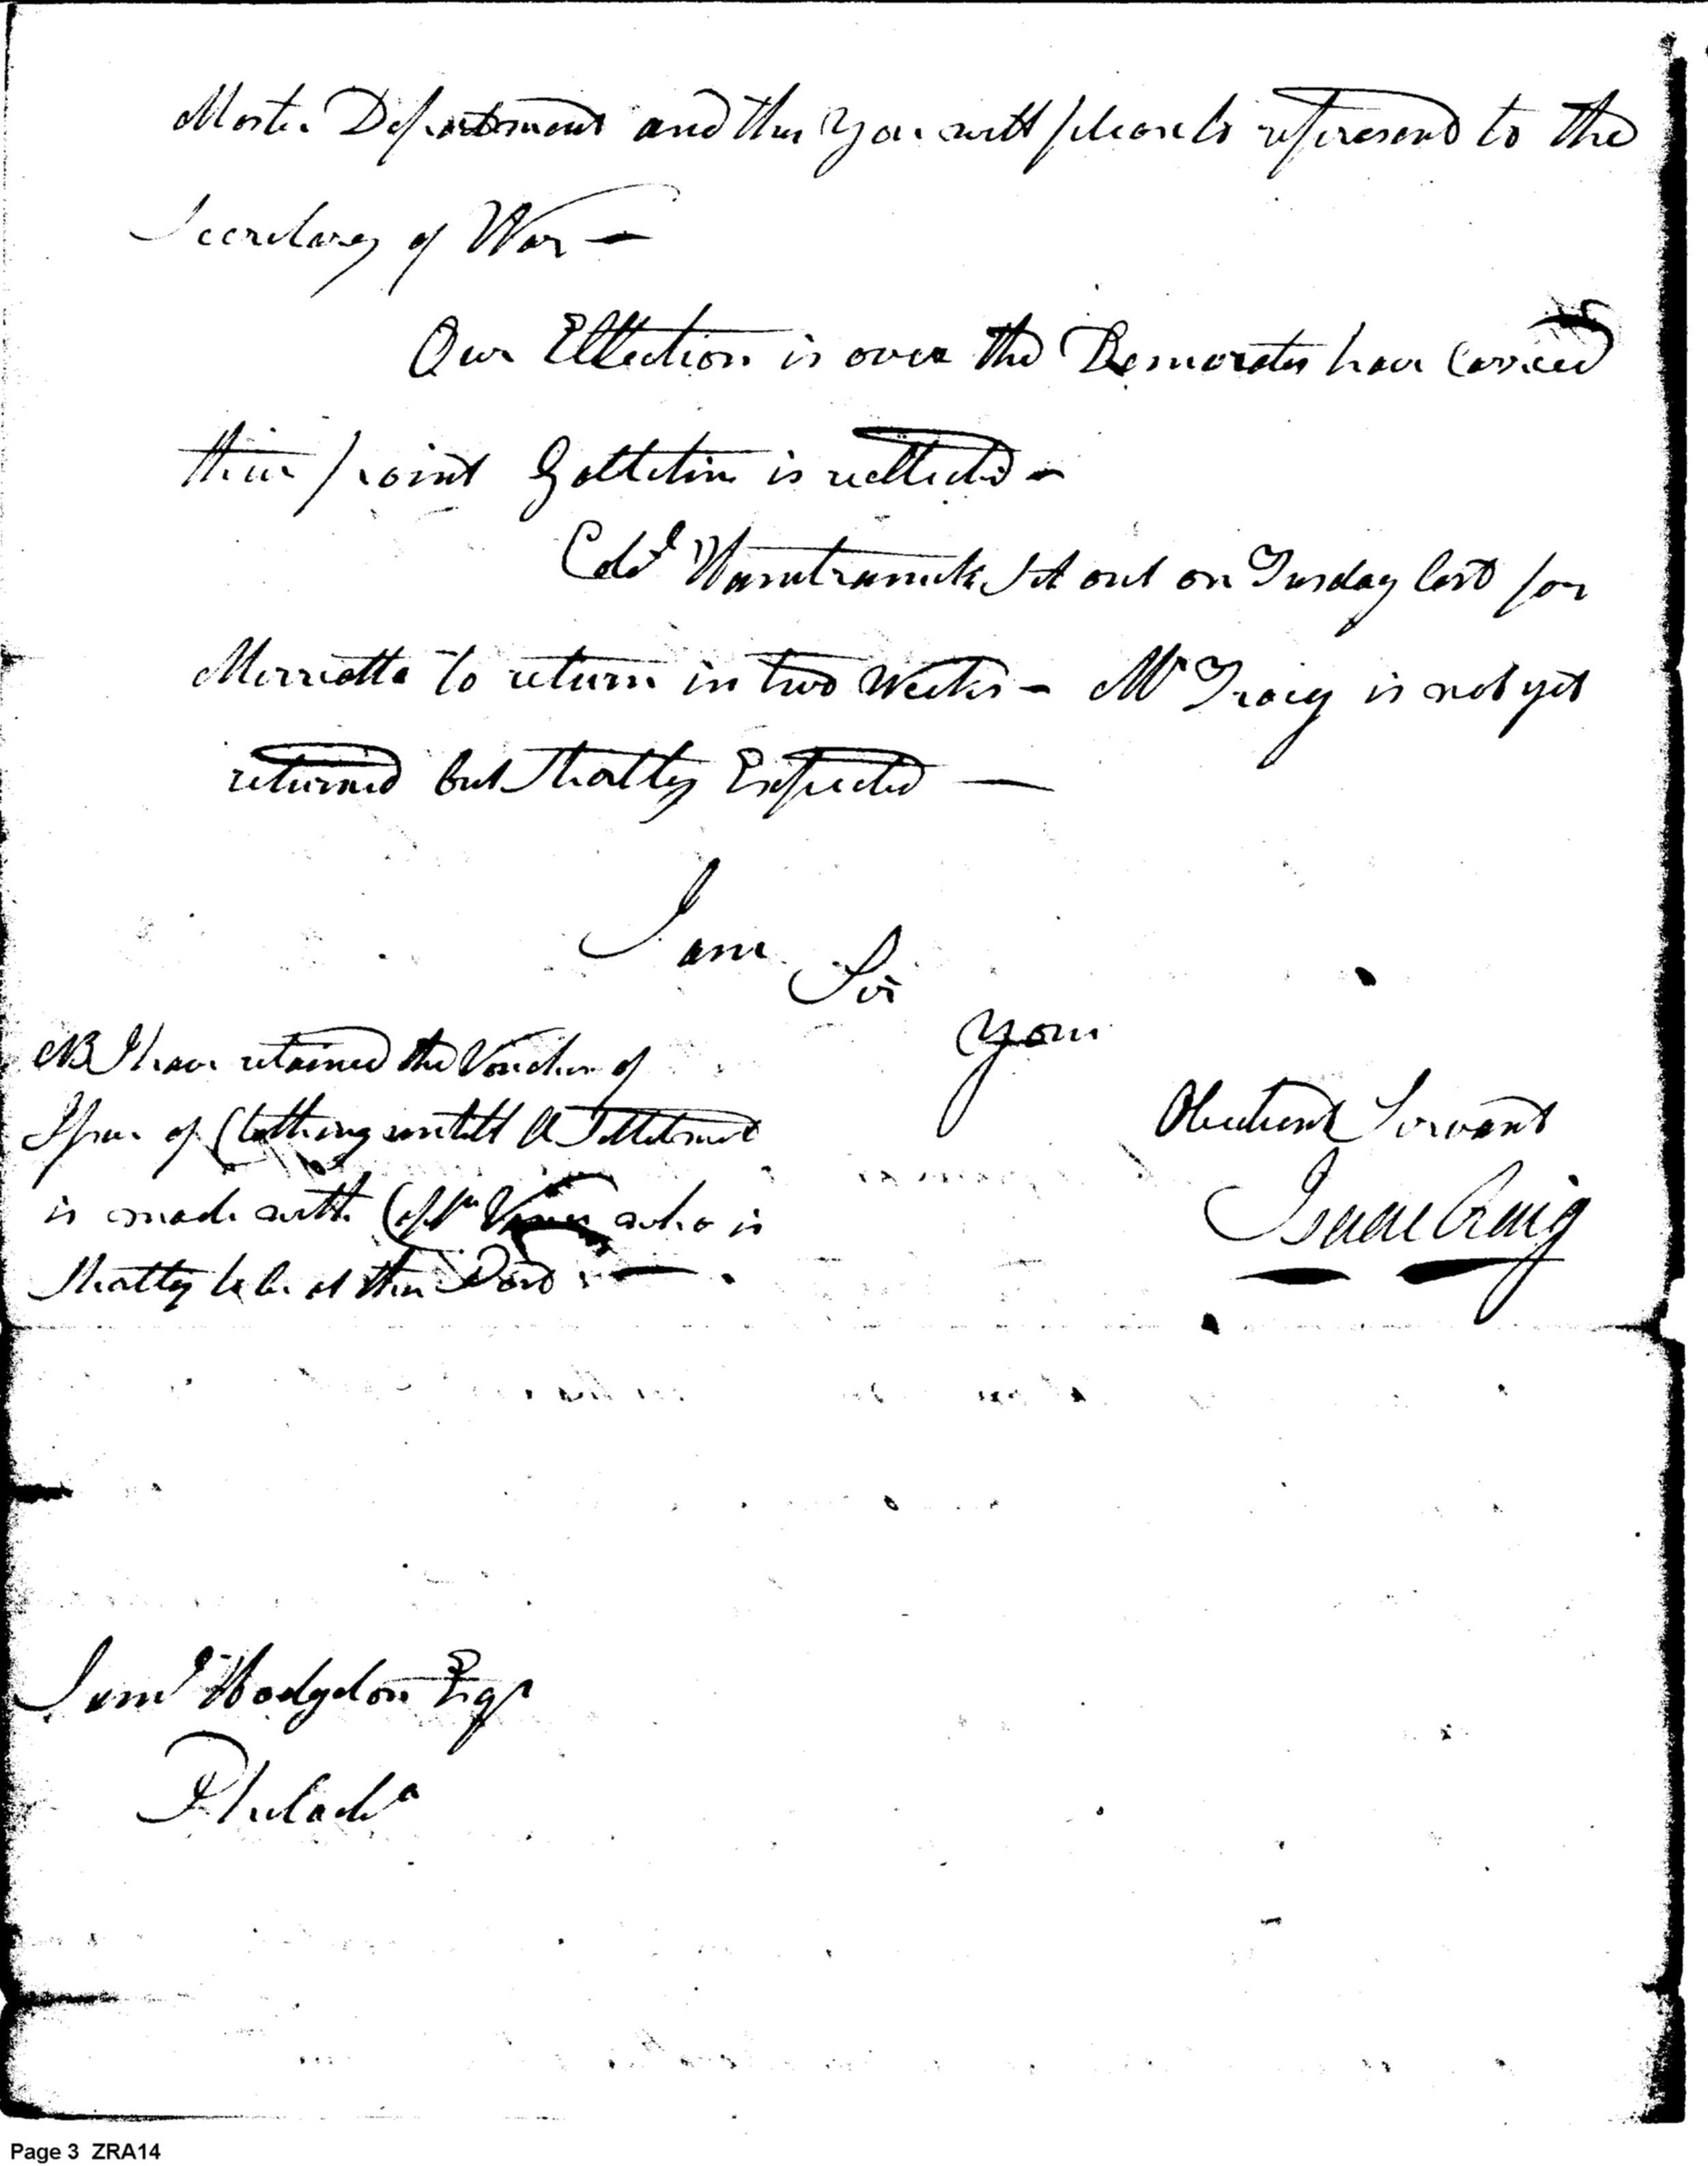 Master Department and this you will please to represent to the
Secretary of War —
Our Ellection is over the Democrats have Carried
their point Gallatin is reelected —
Coll. Hamtramck set out on Tuesday last for
Merrietta to return in two Weeks — Mr Tracy is not yet
returned but Shortly Expected —
I am
Sir
Your
Obedient Servant
Isaac Craig
NB I have retained the Voucher of
Issue of Clothing untill A Settlement
is made with Captn who is
Shortly to be at this Post —
Saml Hodgdon Esqr
Philada
Page 3 ZRA14